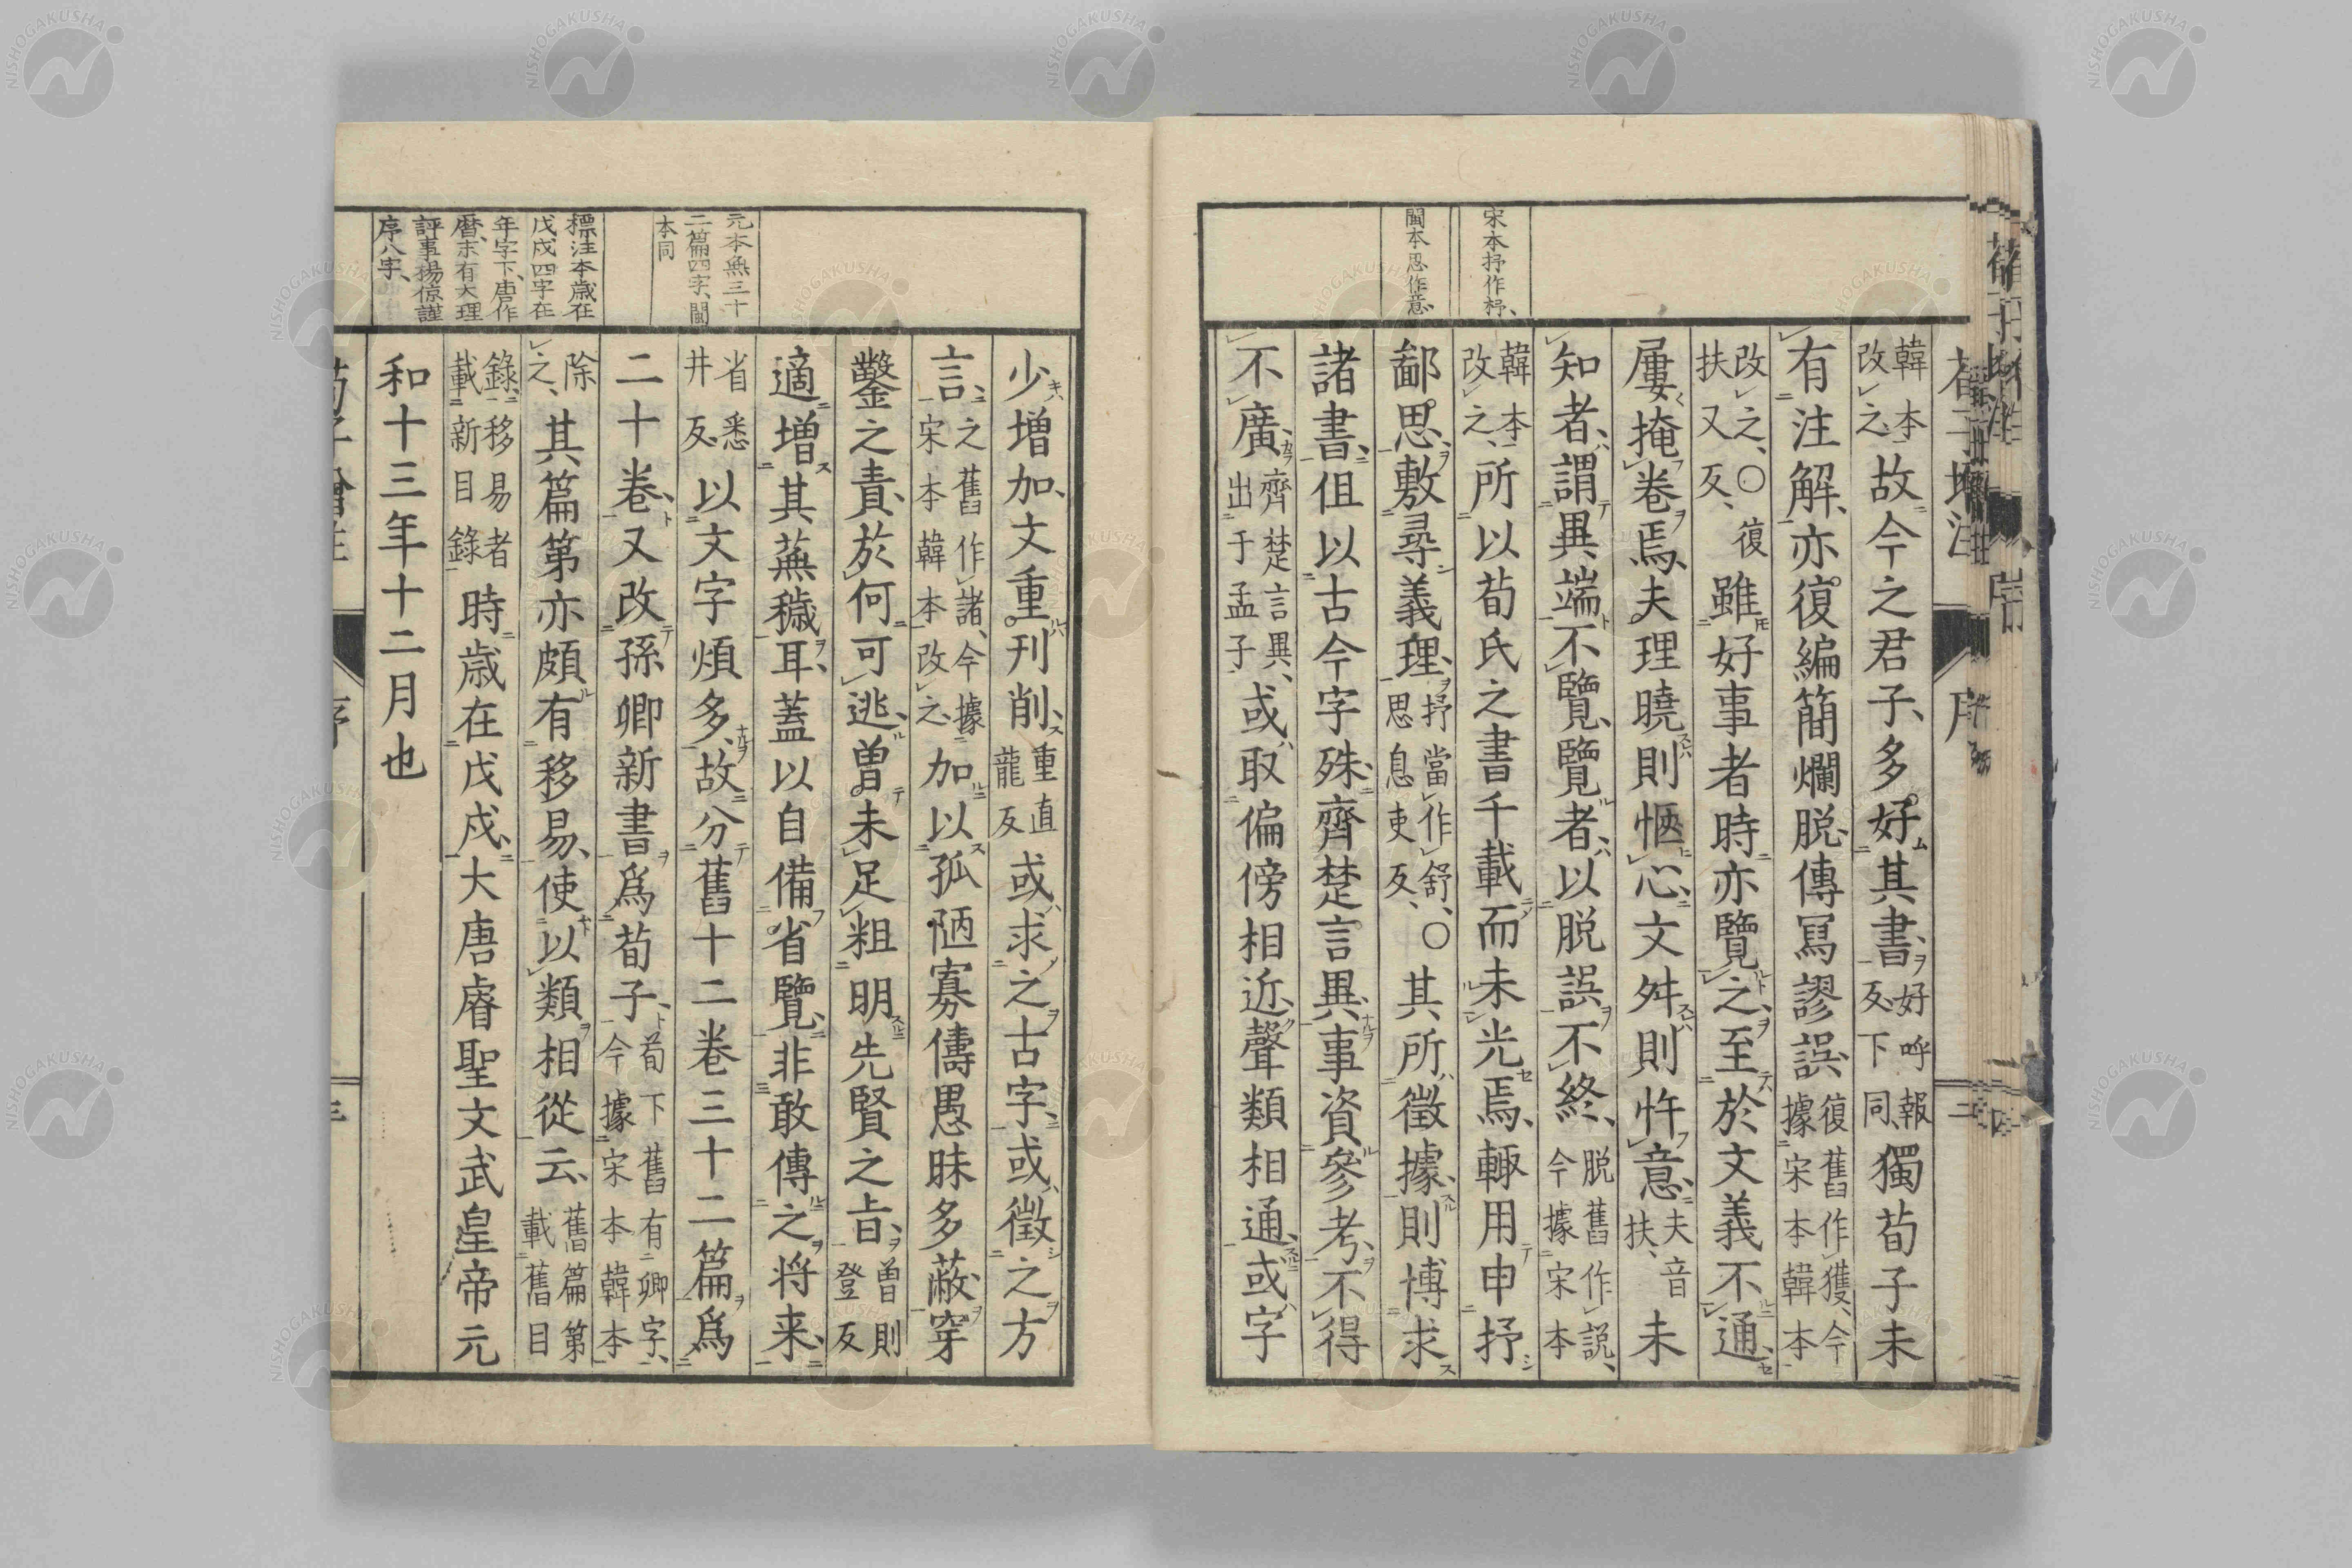 宋本抒作杼、
閩本思作意、
韓本改之、故今之君子、多好其書、好呼報反、下同、獨荀子未
有注解、亦復編簡爛脱、傳冩謬誤、復舊作獲、今據宋本韓本
改之、〇復扶又反、雖好事者時亦覽之、至於文義不通、
屢掩卷焉、夫理曉則愜心、文舛則忤意、夫音扶、未
知者、謂異端不覽、覽者、以脱誤不終、脱舊作説、今據宋本
韓本改之、所以荀氏之書千載而未光焉、輙用申抒
鄙思、敷尋義理、抒當作舒、〇思息吏反、其所徵據、則博求
諸書、但以古今字殊、齊楚言異、事資參考、不得
不廣、齊楚言異、出于孟子、或取偏傍相近、聲類相通、或字
元本無三十
二篇四字、閩
本同
標注本歳在
戊戌四字在
年字下、唐作
暦、末有大理
評事楊倞謹
序八字、
少増加、文重刊削、重直龍反、或求之古字、或徴之方
言、之舊作諸、今據宋本韓本改之、加以孤陋寡儔愚昧多蔽、穿
鑿之責、於何可逃、曽未足粗明先賢之旨、曽則登反
適増其蕪穢耳、蓋以自備省覽、非敢傳之将来、
省悉井反、以文字煩多、故分舊十二卷三十二篇爲
二十卷、又改孫卿新書爲荀子、荀下舊有卿字、今據宋本韓本
除之、其篇第亦頗有移易、使以類相從云、舊篇第載舊目
錄、移易者載新目錄、時歳在戊戌、大唐睿聖文武皇帝元
和十三年十二月也